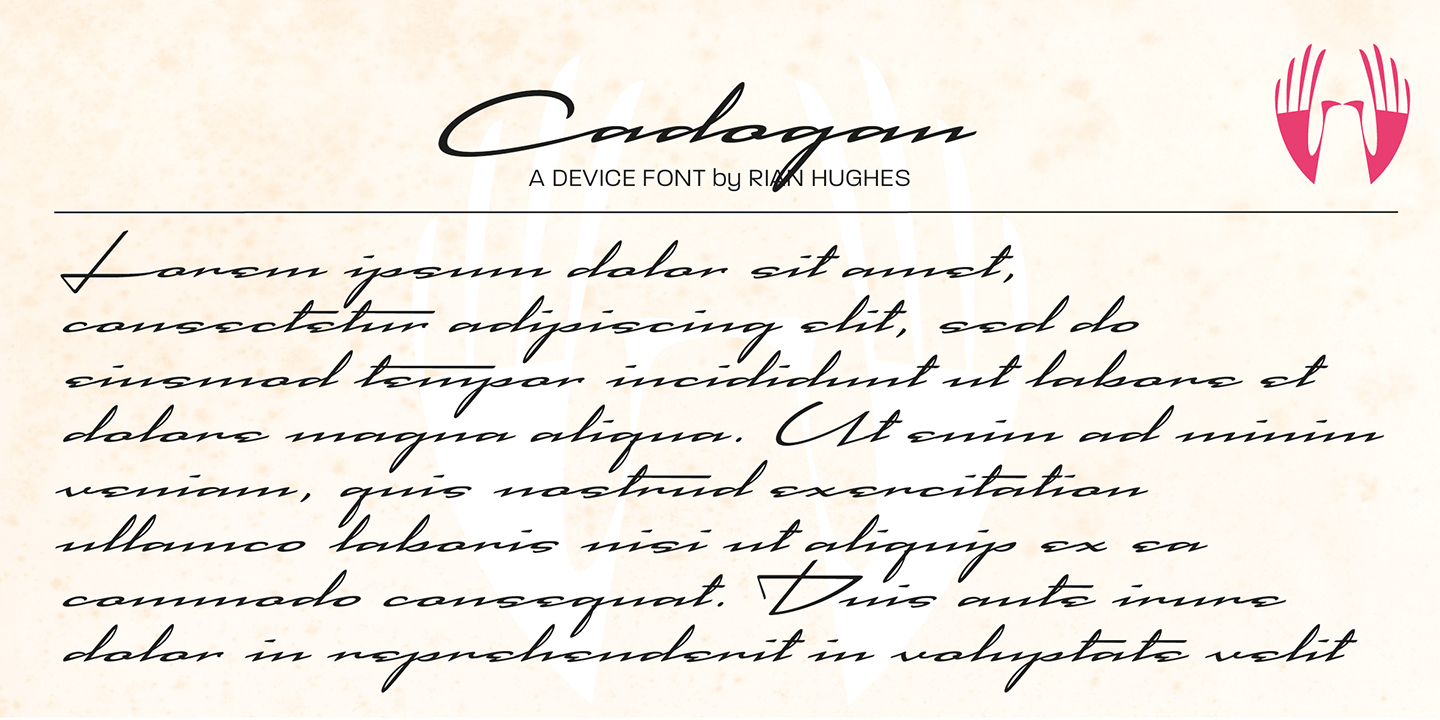 Cadogan
A DEVICE FONT by RIAN HUGHES
Lorem ipsum dolor sit amet,
consectetur adipiscing elit, sed do
eiusmod tempor incididunt ut labore et
dolore magna aliqua. Ut enim ad minim
veniam, quis nostrud exercitation
ullamco laboris nisi ut aliquip ex ea
commodo consequat. Duis aute irure
dolor in reprehenderit in voluptate velit